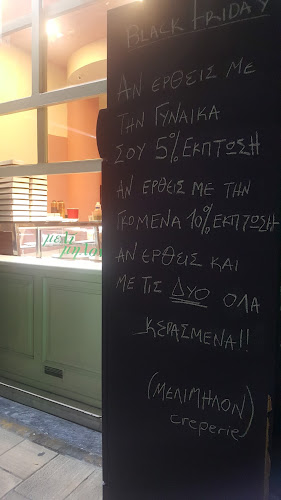 BLACK FRIDAY
ΑΝ ΕΡΘΕΙΣ ΜΕ
ΤΗΝ ΓΥΝΑΙΚΑ
ΣΟΥ 5% ΕΚΠΤΩΣΗ
ΑΝ ΕΡΘΕΙΣ ΜΕ ΤΗΝ
ΓΚΟΜΕΝΑ 10% ΕΚΠΤΩΣΗ
ΑΝ ΕΡΘΕΙΣ ΚΑΙ
ΜΕ ΤΙΣ ΔΥΟ ΟΛΑ
ΚΕΡΑΣΜΕΝΑ!!
(ΜΕΛΙΜΗΛΟΝ)
creperie
μελι
μηλον